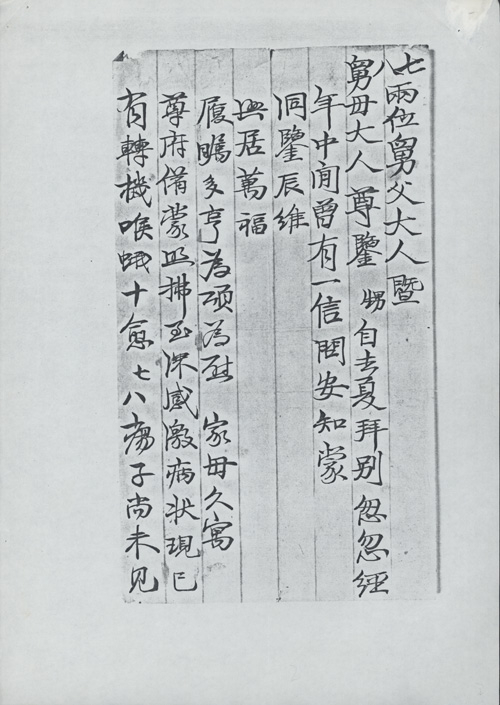 七八兩位舅父大人暨
舅母大人尊鑒 甥自去夏拜別忽忽經
年中間曾有一信問安知蒙
洞鑒辰維
興居萬福
履祺多亨為頌為慰 家母久寓
尊府備蒙照拂至深感激病狀現已
有轉機喉蛾十愈七八瘍子尚未見